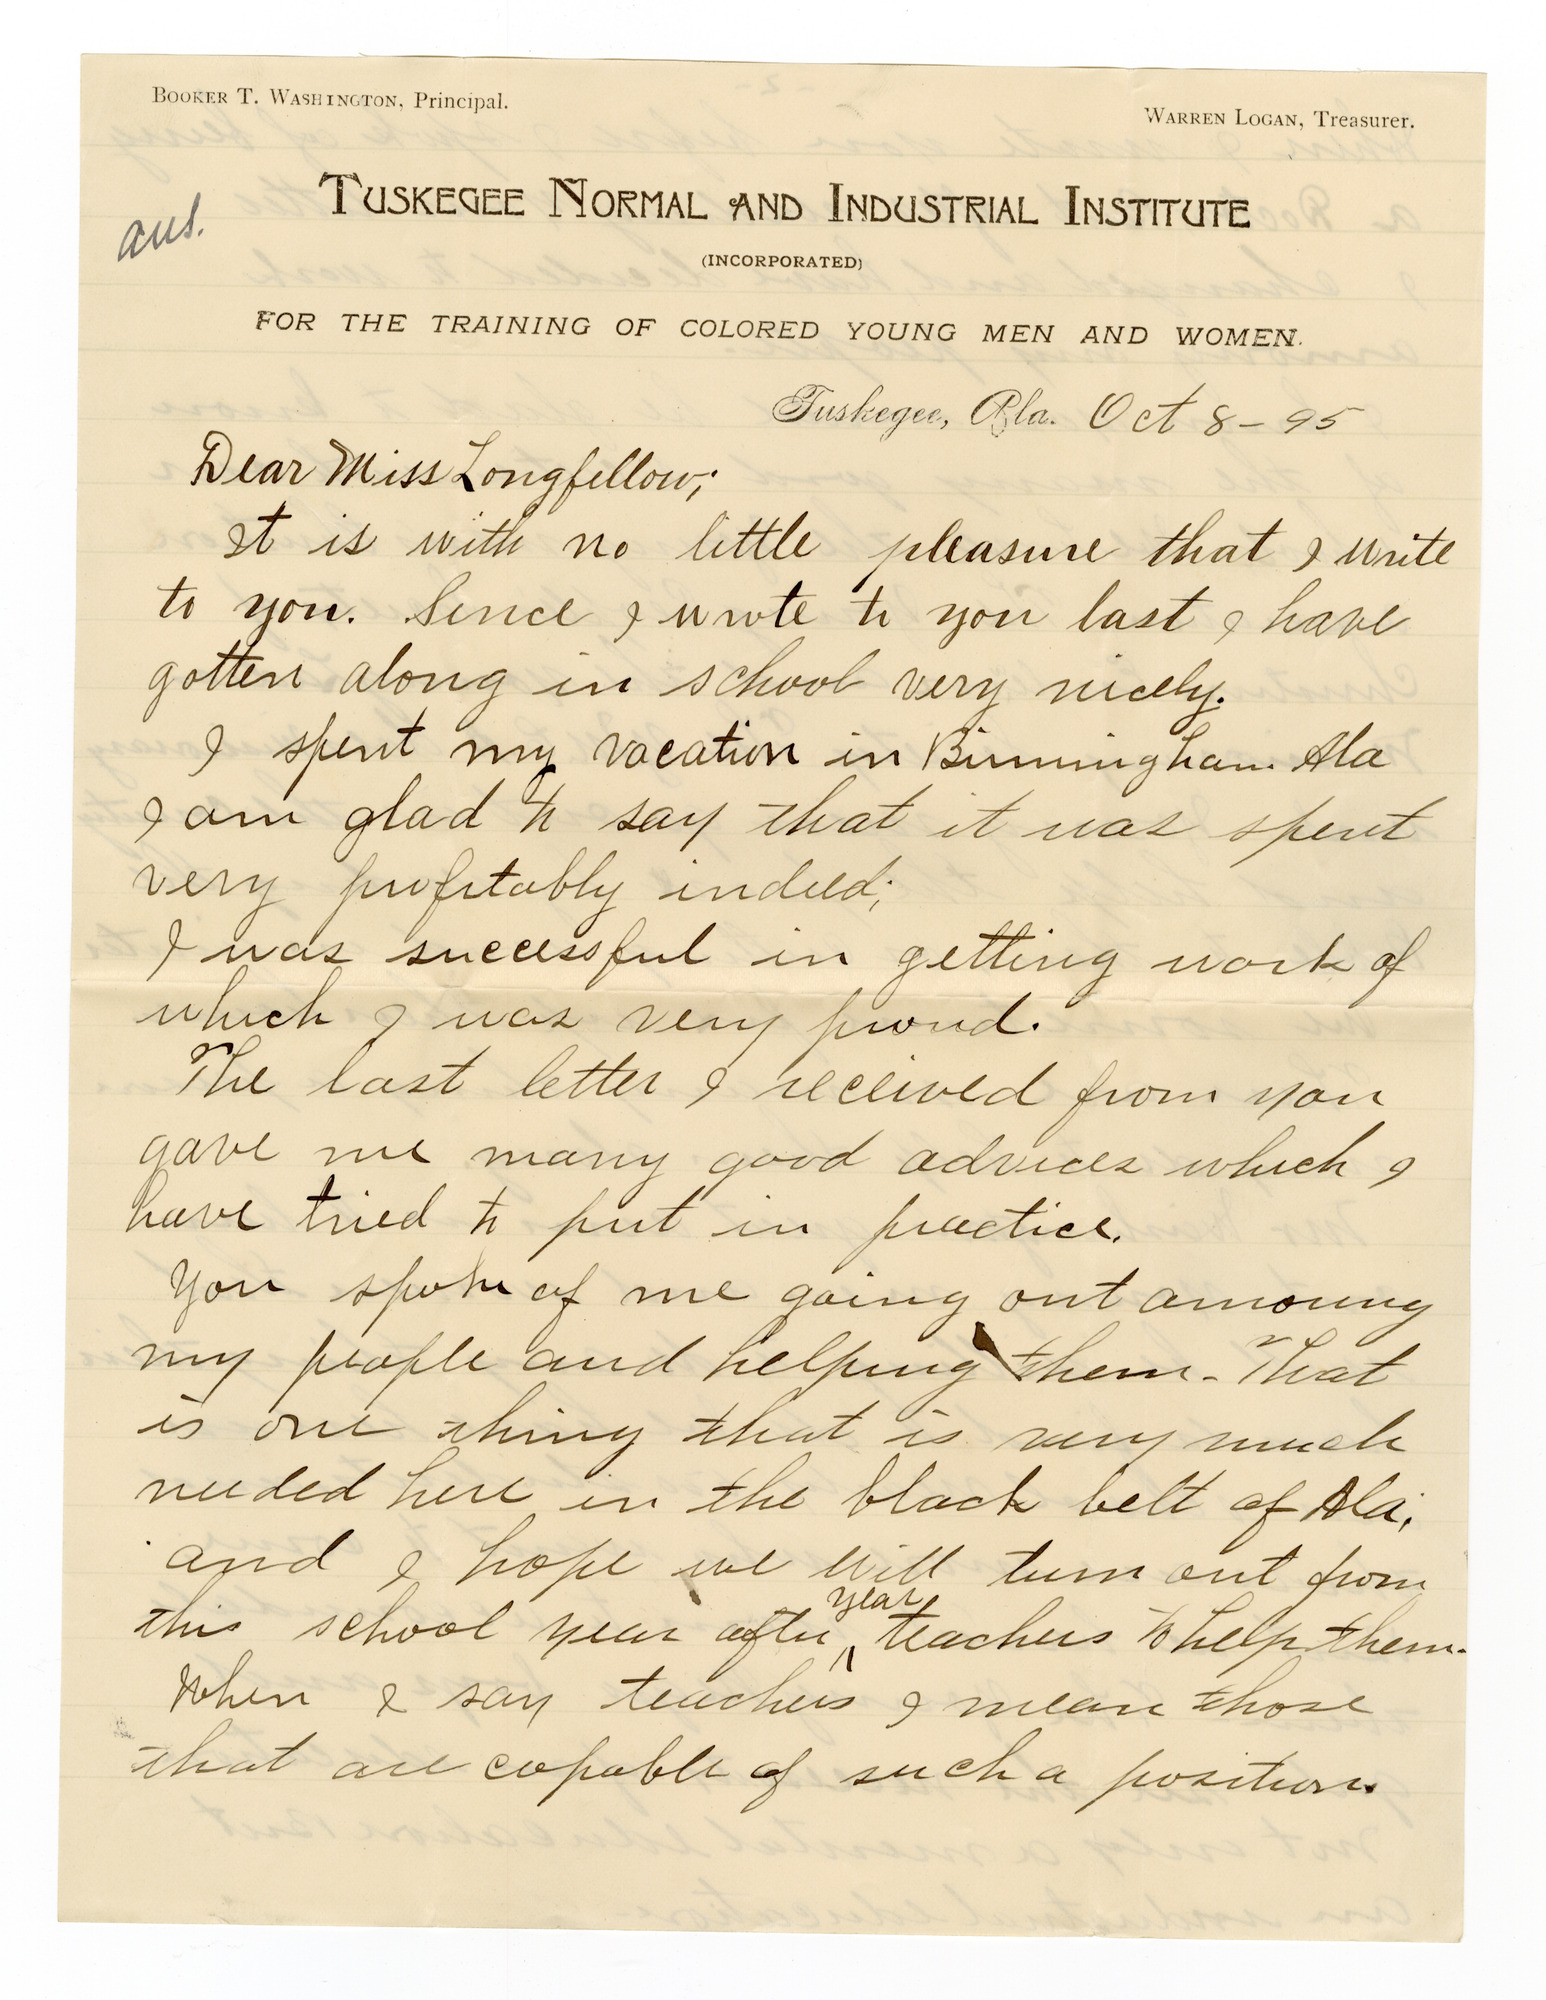 BOOKER T. WASHINGTON, Principal.
WARREN LOGAN, Treasurer.
TUSKEGEE NORMAL AND INDUSTRIAL INSTITUTE
(INCORPORATED)
ans.
FOR THE TRAINING OF COLORED YOUNG MEN AND WOMEN.
Tuskegee, Ala. Oct 8-95
Dear Miss Longfellow;
It is with no little pleasure that I write
to you. Since I wrote to you last I have
gotten along in school very nicely.
I spent my vacation in Birmingham Ala
I am glad to say that it was spent
very profitably indeed;
I was successful in getting work of
which I was very proud.
The last letter I received from you
gave me many good advices which I
have tried to put in practice.
You spoke of me going out amoung
my people and helping them. That
is one thing that is very much
needed here in the black belt of Ala;
and I hope we will turn out from
this school year after year teachers to help them.
When I say teachers I mean those
that are capable of such a position.